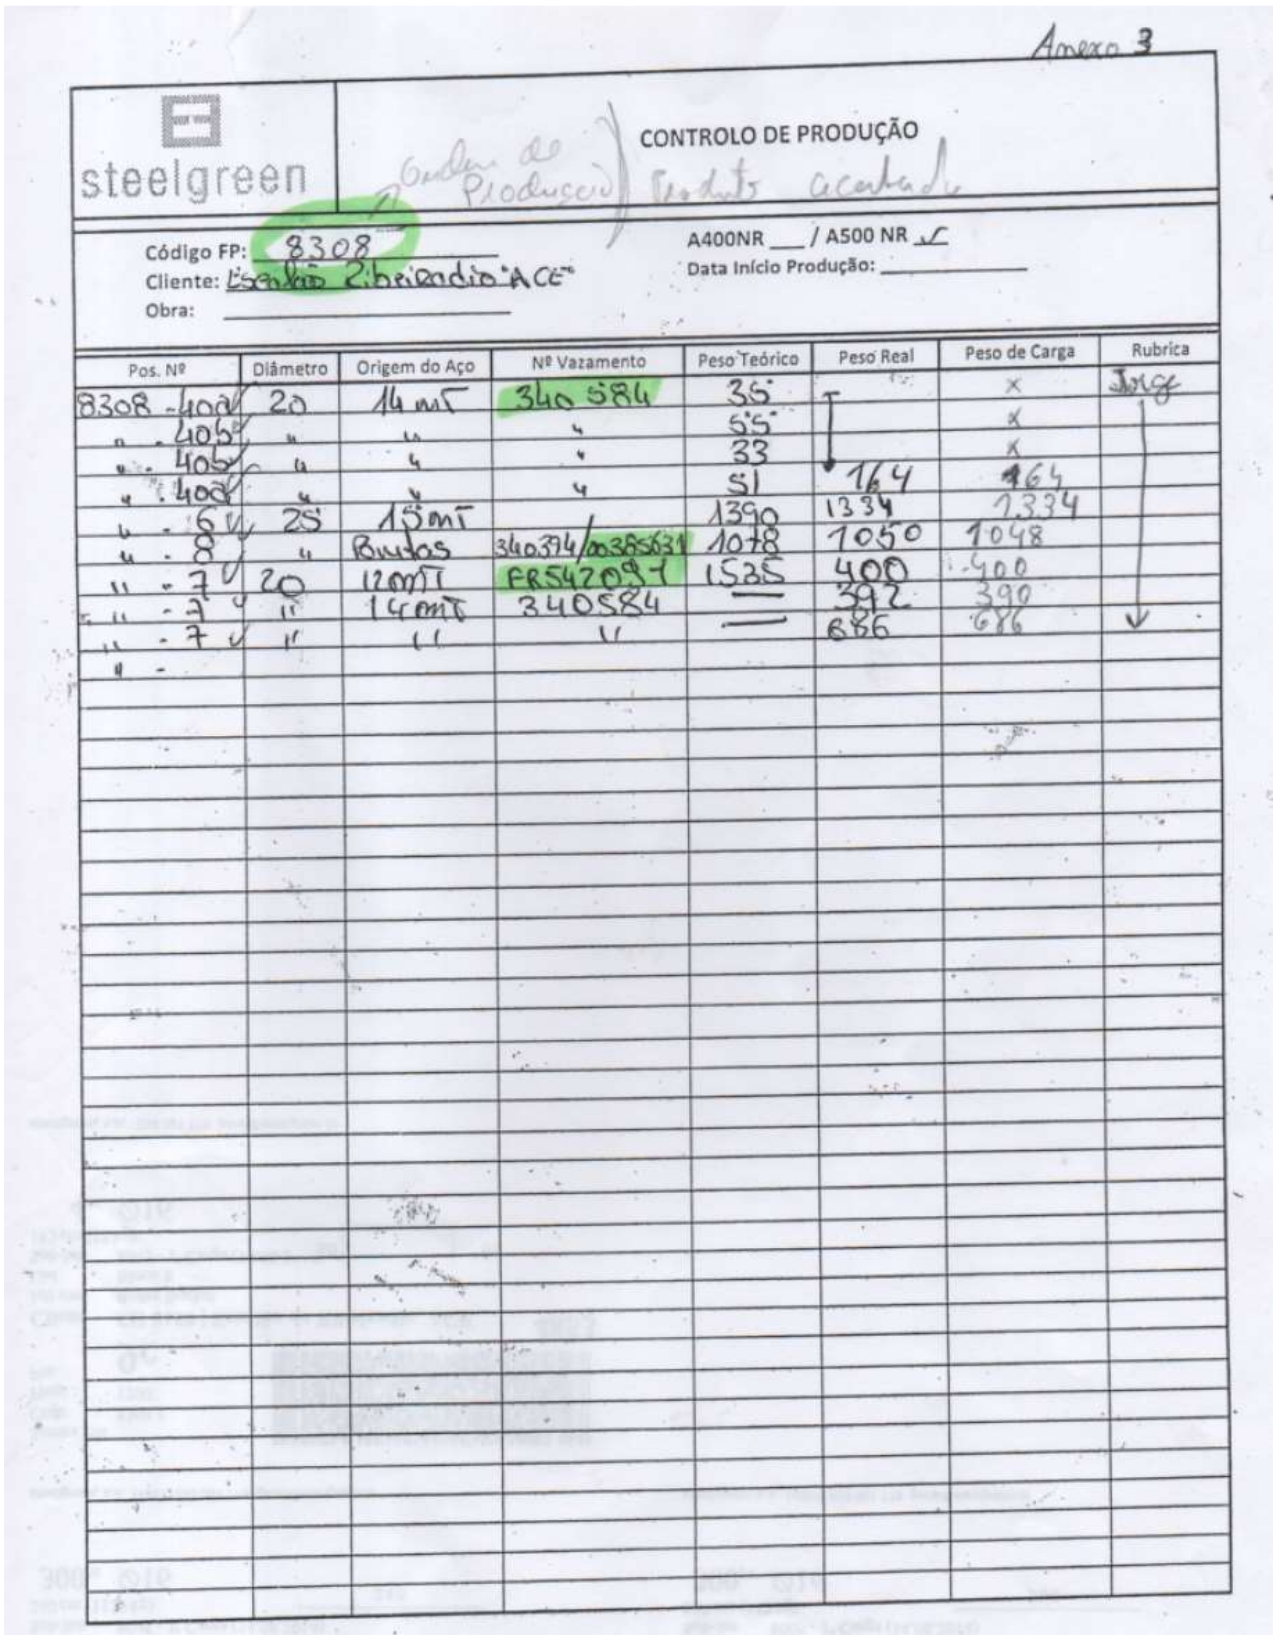 Anexo 3
steelgreen
CONTROLO DE PRODUÇÃO
Ordem de Produção
Produto acabado
Código FP: 8308
A400NR ___ / A500 NR ✓
Cliente: Ribeiradio "ACE"
Data Início Produção: ____
Obra: ____
Pos. Nº Diâmetro Origem do Aço Nº Vazamento Peso Teórico Peso Real Peso de Carga Rubrica
8308 - 40a ✓ 20 14 mT 340 584 35 x Jorge
" - 40b ✓ " " " 55 x
" - 40b ✓ " " " 33 x
" - 40a ✓ " " " 51 164 164
" - 6 ✓ 25 15 mT 1390 1334 1334
" - 8 ✓ " Pontas 340394/00385631 1078 1050 1048
" - 7 ✓ 20 12mT FR542091 1535 400 400
" - 7 ✓ " 14mT 340584 — 392 390
" - 7 ✓ " " " — 686 686
" -